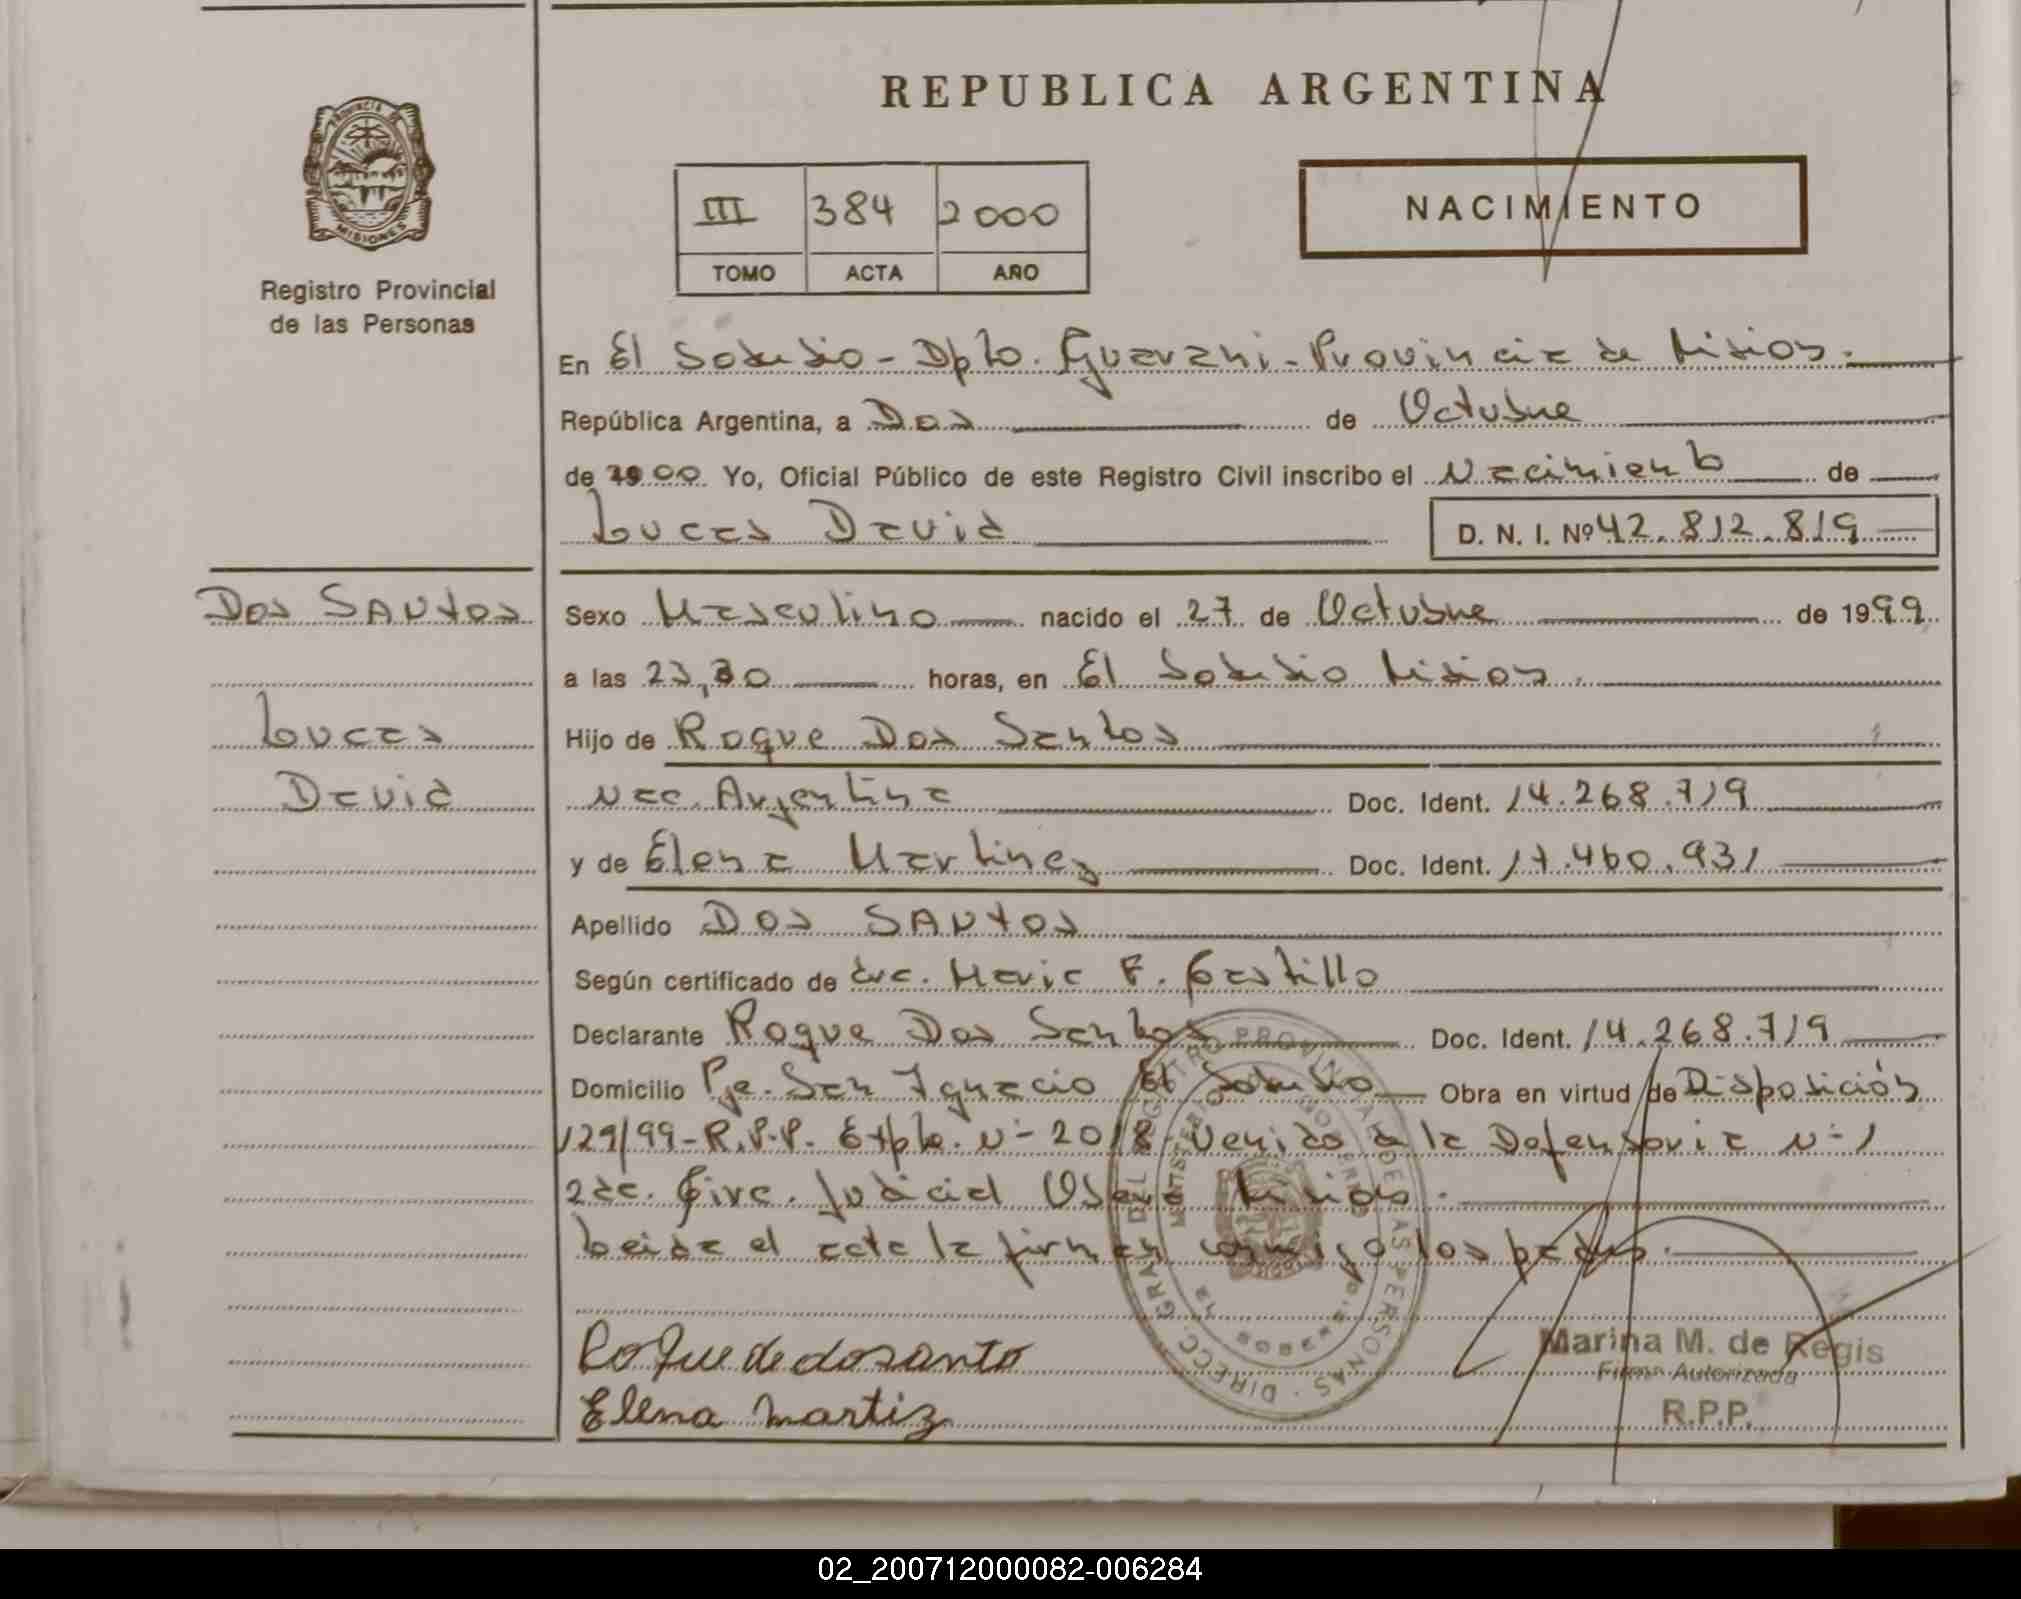 REPUBLICA ARGENTINA
PROVINCIA DE
MISIONES
Registro Provincial
de las Personas
III 384 2000
TOMO ACTA AÑO
NACIMIENTO
En El Soberbio - Dpto. Guarani - Provincia de Misiones.
República Argentina, a Dos de Octubre
de 1900 Yo, Oficial Público de este Registro Civil inscribo el Nacimiento de
Lucas David D. N. I. Nº 42.812.819
Dos SAntos
Lucas
David
Sexo Masculino nacido el 27 de Octubre de 1999
a las 23,30 horas, en El Soberbio Misiones.
Hijo de Roque Dos Santos
Nac. Argentina Doc. Ident. 14.268.719
y de Elena Martinez Doc. Ident. 17.460.931
Apellido Dos SAntos
Según certificado de Enc. Maria F. Castillo
Declarante Roque Dos Santos Doc. Ident. 14.268.719
Domicilio Pje. San Ignacio El Soberbio Obra en virtud de Disposición
129/99 - R.P.P. Expte. Nº 2018 Venido de la Defensoria Nº 1
2da. Circ. Judicial Oberá Misiones.
Leida el acta la firman conmigo los padres.
DIRECC. GRAL. DEL REGISTRO PROVINCIAL DE LAS PERSONAS
MINISTERIO GOBIERNO
Roque de dosanto
Elena Martiz
Marina M. de Regis
Firma Autorizada
R.P.P.
02_200712000082-006284